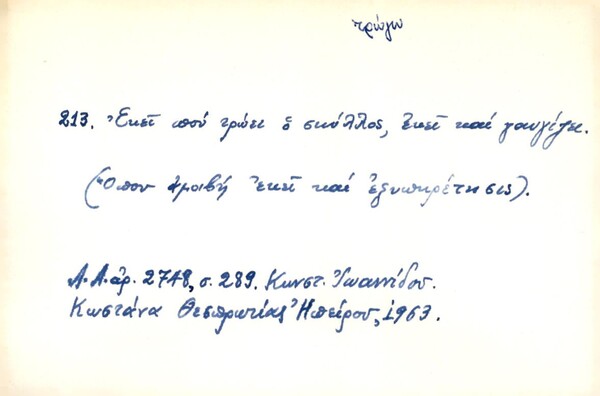 τρώγω
213. Ἐκεῖ πού τρώει ὁ σκύλλος, ἐκεῖ καί γαυγίζει.
(Ὅπου ἀμοιβή ἐκεῖ καί ἐξυπηρέτησις).
Λ.Α. ἀρ. 2748, σ. 289. Κωνστ. Ἰωαννίδου.
Κωστάνα Θεσπρωτίας Ἠπείρου, 1963.